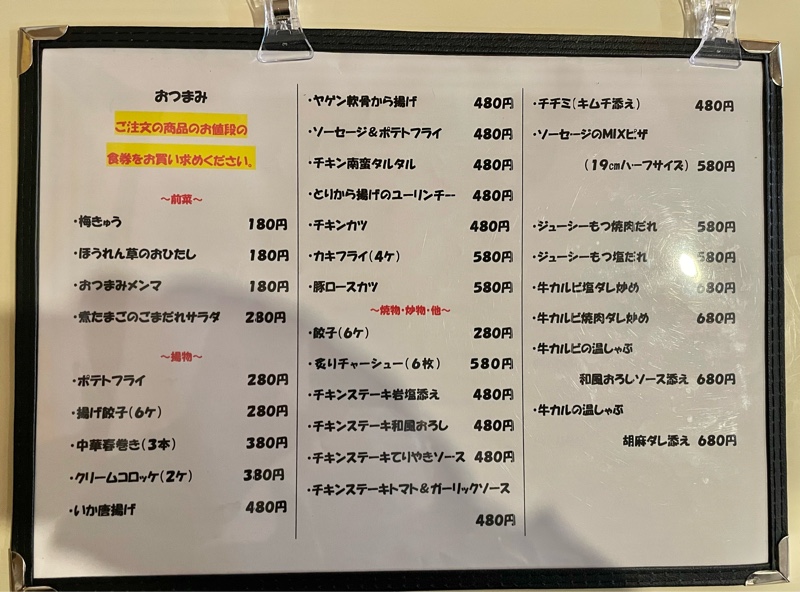 おつまみ
ご注文の商品のお値段の
食券をお買い求めください。
～前菜～
・梅きゅう 180円
・ほうれん草のおひたし 180円
・おつまみメンマ 180円
・煮たまごのごまだれサラダ 280円
～揚物～
・ポテトフライ 280円
・揚げ餃子(6ケ) 280円
・中華春巻き(3本) 380円
・クリームコロッケ(2ケ) 380円
・いか唐揚げ 480円
・ヤゲン軟骨から揚げ 480円
・ソーセージ&ポテトフライ 480円
・チキン南蛮タルタル 480円
・とりから揚げのユーリンチー 480円
・チキンカツ 480円
・カキフライ(4ケ) 580円
・豚ロースカツ 580円
～焼物・炒物・他～
・餃子(6ケ) 280円
・炙りチャーシュー(6枚) 580円
・チキンステーキ岩塩添え 480円
・チキンステーキ和風おろし 480円
・チキンステーキてりやきソース 480円
・チキンステーキトマト&ガーリックソース
480円
・チヂミ(キムチ添え) 480円
・ソーセージのMIXピザ
(19cmハーフサイズ) 580円
・ジューシーもつ焼肉だれ 580円
・ジューシーもつ塩だれ 580円
・牛カルビ塩ダレ炒め 680円
・牛カルビ焼肉ダレ炒め 680円
・牛カルビの温しゃぶ
和風おろしソース添え 680円
・牛カルの温しゃぶ
胡麻ダレ添え 680円